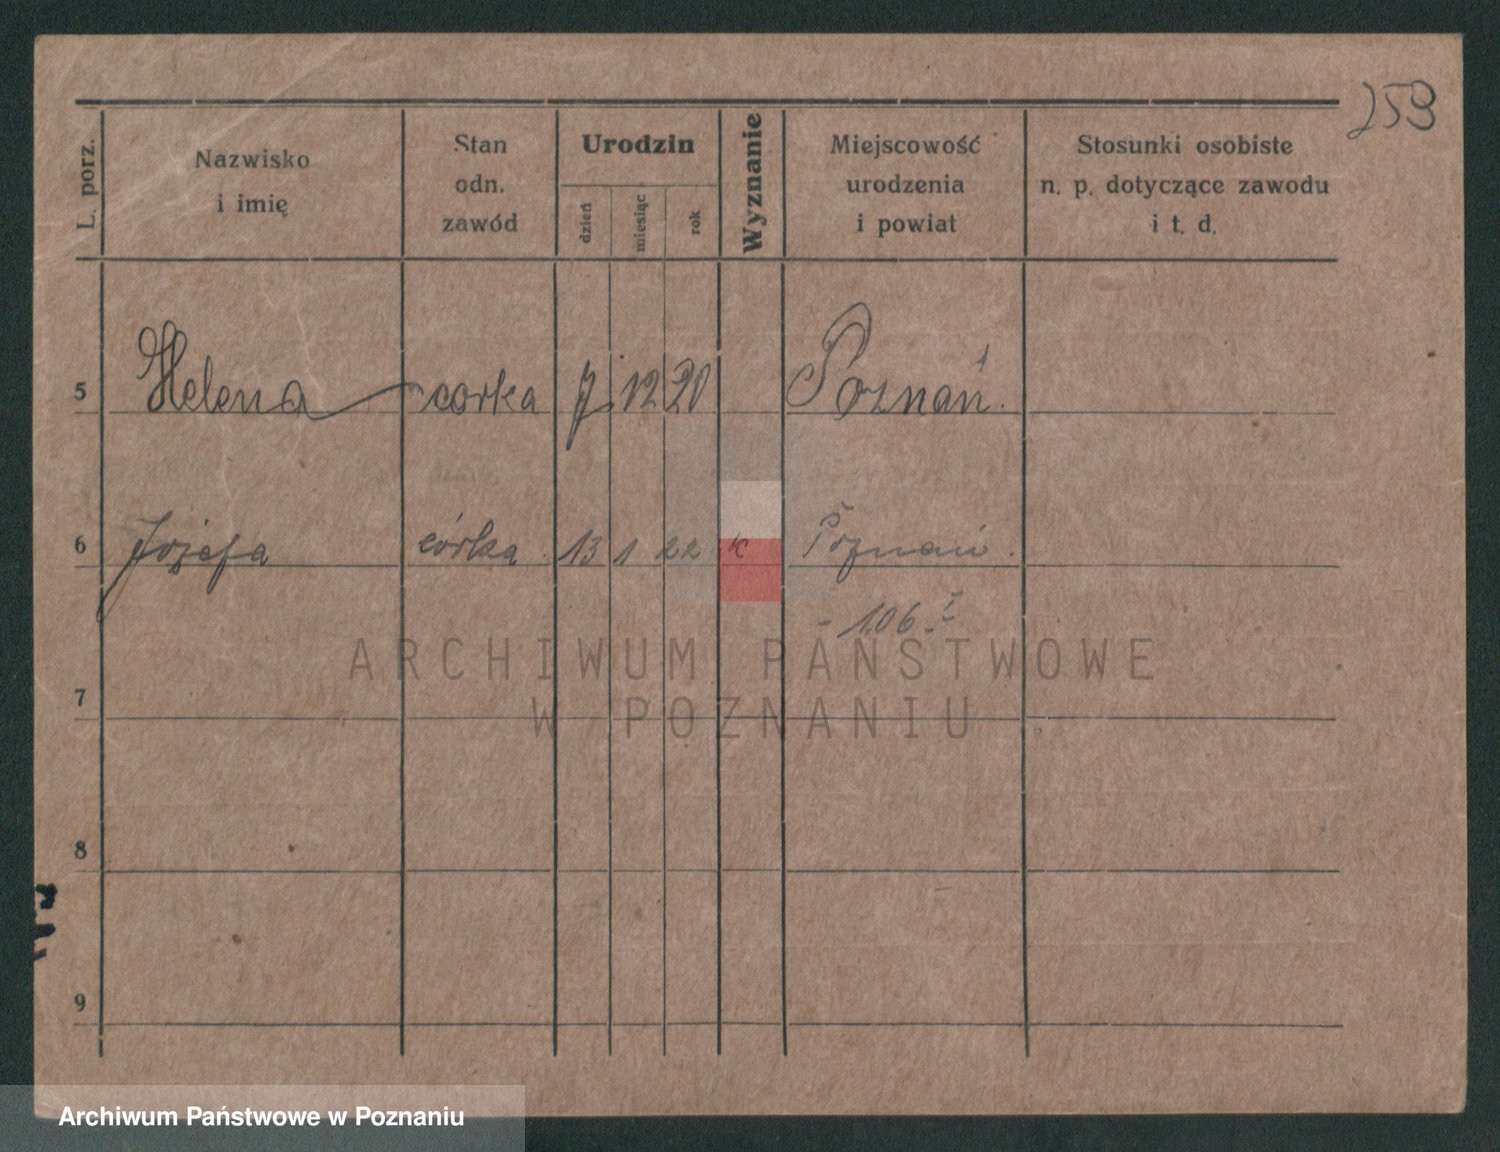 259
L. porz.
Nazwisko
i imię
Stan
odn.
zawód
Urodzin
dzień
miesiąc
rok
Wyznanie
Miejscowość
urodzenia
i powiat
Stosunki osobiste
n. p. dotyczące zawodu
i t. d.
5 Helena corka 7 12 20 Poznań.
6 Józefa córka. 13 1 22 k Poznań.
106.
ARCHIWUM PAŃSTWOWE
W POZNANIU
7
8
9
Archiwum Państwowe w Poznaniu